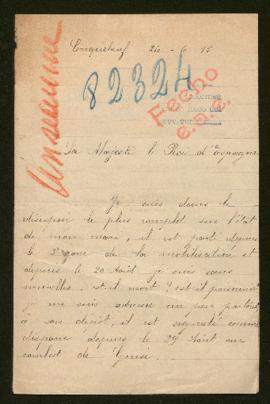 20 - 6 15
82324
Fecho
Sa Majesté le Roi d'Espagne
Je suis dans le
désespoir le plus complet sur l'état
de mon mari, il est parti depuis
le 3e jour de la mobilisation et
depuis le 20 Août je suis sans
nouvelles. est il mort? est il prisonnier
je me suis adressé un peu partout
à son dépôt, il est signalé comme
disparu depuis le 29 Août au
combat de Guise.